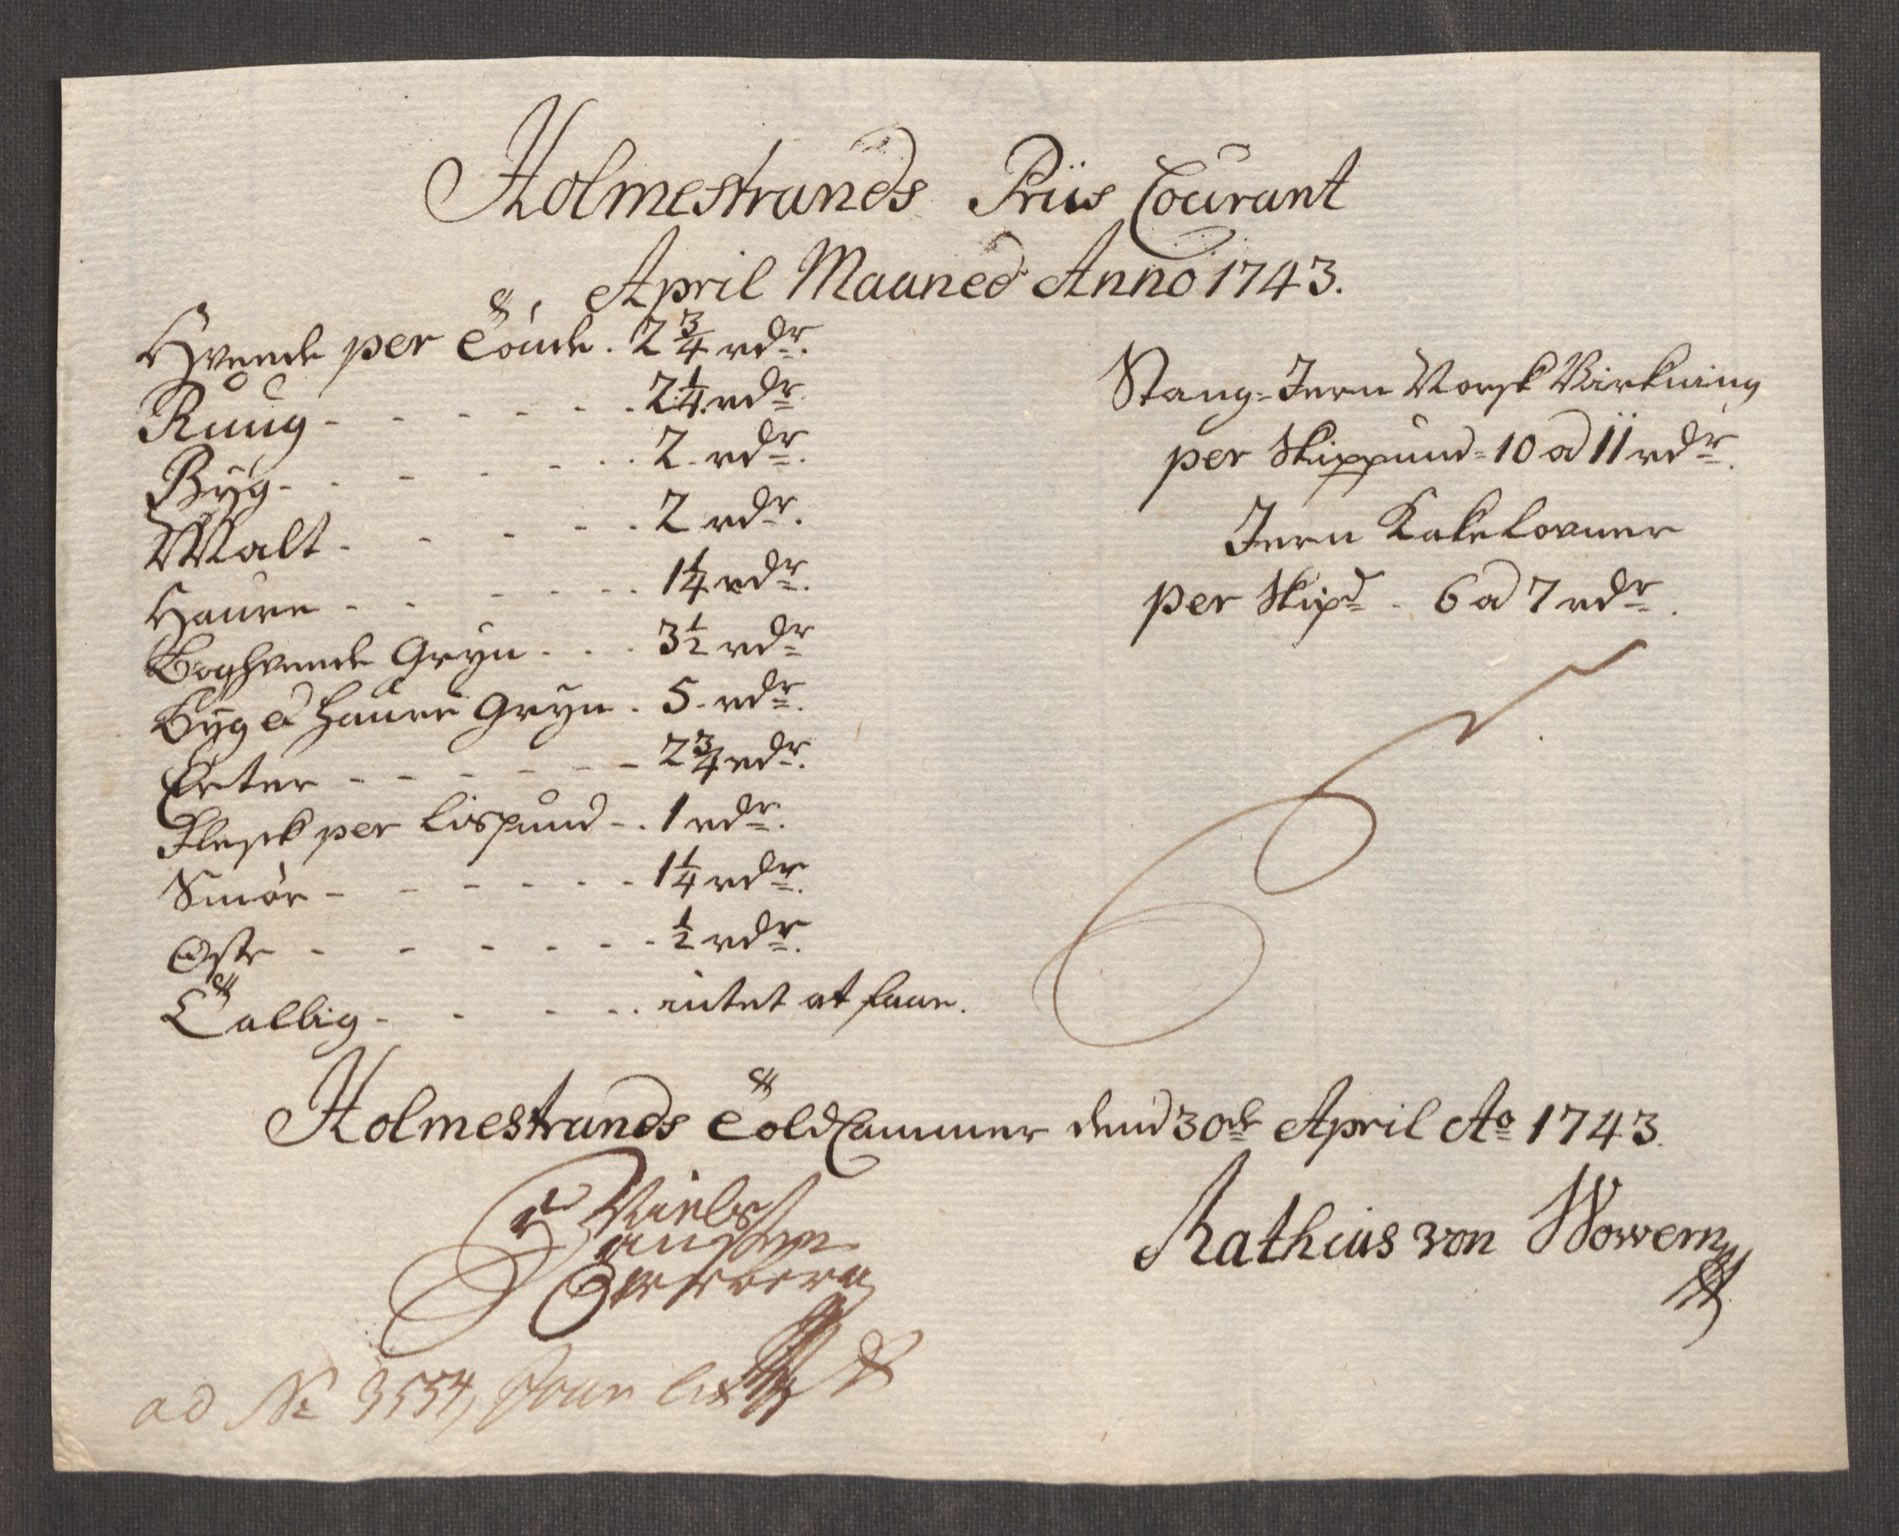 Holmestrands Priis Courant
April Maaned Anno 1743.
Hveede per Tönde. 2 3/4 rdr.
Ruug - - - - - - 2 1/4 rdr.
Byg - - - - - - 2. rdr.
Malt - - - - - 2 rdr.
Haure - - - - - - 1 1/4 rdr.
Boghvede Gryn - - - 3 1/2 rdr
Byg a Haure Gryn. 5. rdr.
Erter - - - - - - 2 3/4 rdr.
Flesk per Lispund - . 1 rdr.
Smör - - - - - - 1 1/4 rdr.
Oste - - - - - - 1/2 rdr.
Tallig - - - - - intet at faae.
Stang-Jern Norsk Virkning
per Skippund = 10 a 11 rdr.
Jern Kakelovner
per Skipd - 6 a 7 rdr.
Holmestrands Told Cammer dend 30de April Ao 1743.
Niels
Mathias von Wowern
ad No 3554,